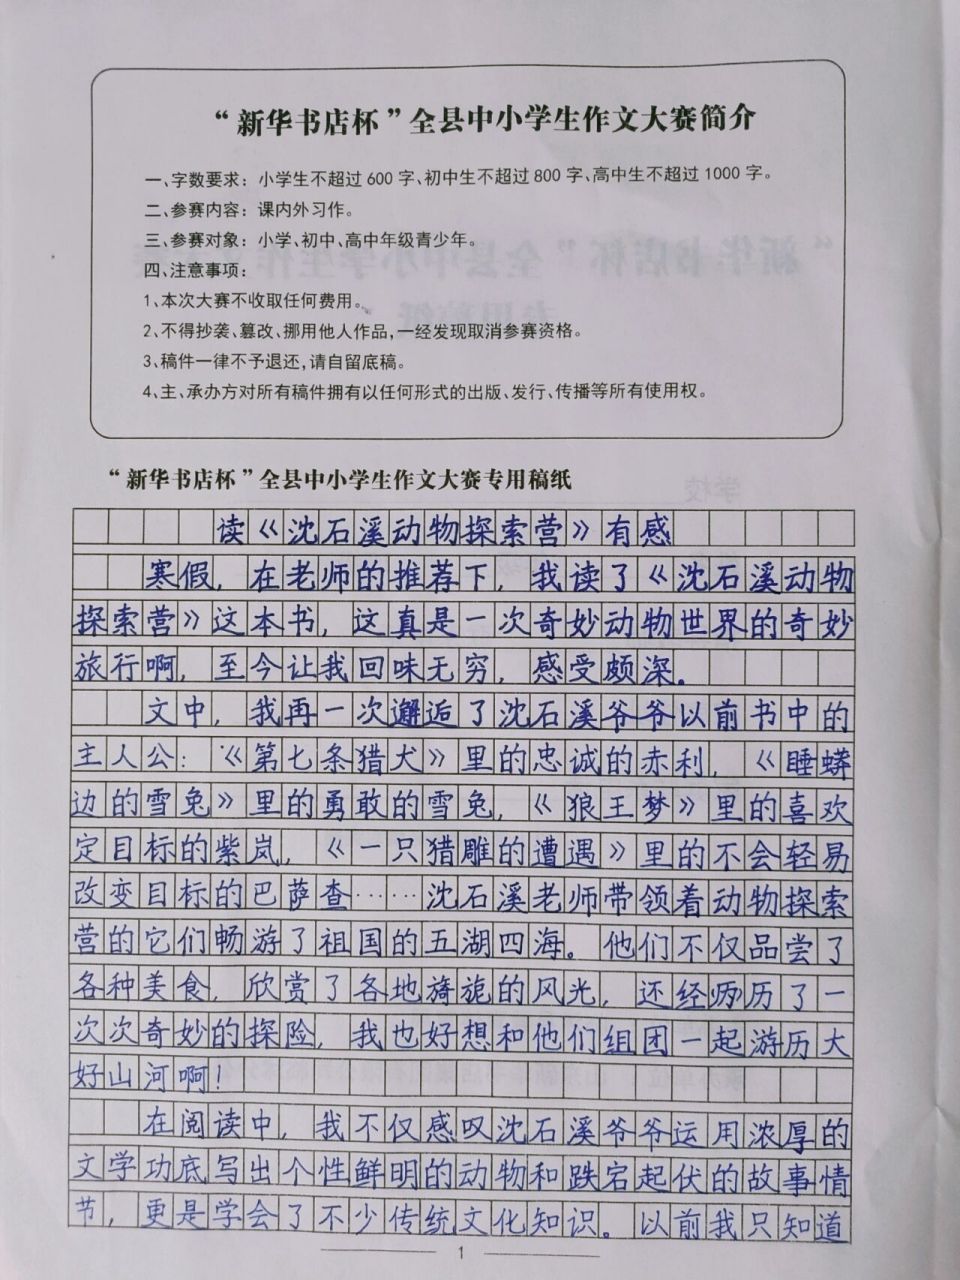 “新华书店杯”全县中小学生作文大赛简介
一、字数要求：小学生不超过600字、初中生不超过800字、高中生不超过1000字。
二、参赛内容：课内外习作。
三、参赛对象：小学、初中、高中年级青少年。
四、注意事项：
1、本次大赛不收取任何费用。
2、不得抄袭、篡改、挪用他人作品，一经发现取消参赛资格。
3、稿件一律不予退还，请自留底稿。
4、主、承办方对所有稿件拥有以任何形式的出版、发行、传播等所有使用权。
“新华书店杯”全县中小学生作文大赛专用稿纸
读《沈石溪动物探索营》有感
寒假，在老师的推荐下，我读了《沈石溪动物
探索营》这本书，这真是一次奇妙动物世界的奇妙
旅行啊，至今让我回味无穷，感受颇深。
文中，我再一次邂逅了沈石溪爷爷以前书中的
主人公：《第七条猎犬》里的忠诚的赤利，《睡蟒
边的雪兔》里的勇敢的雪兔，《狼王梦》里的喜欢
定目标的紫岚，《一只猎雕的遭遇》里的不会轻易
改变目标的巴萨查……沈石溪老师带领着动物探索
营的它们畅游了祖国的五湖四海。他们不仅品尝了
各种美食，欣赏了各地旖旎的风光，还经历了一
次次奇妙的探险，我也好想和他们组团一起游历大
好山河啊！
在阅读中，我不仅感叹沈石溪爷爷运用浓厚的
文学功底写出个性鲜明的动物和跌宕起伏的故事情
节，更是学会了不少传统文化知识。以前我只知道
1